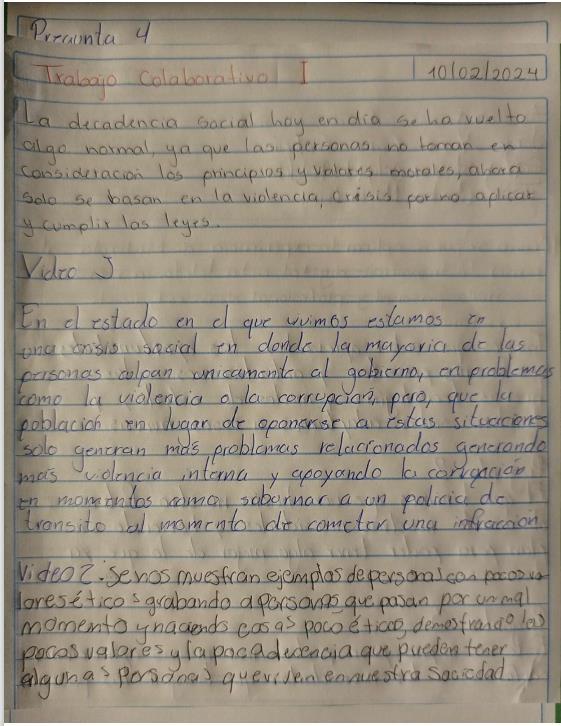 Pregunta 4
Trabajo Colaborativo I
10/02/2024
La decadencia social hoy en día se ha vuelto
algo normal, ya que las personas no toman en
consideración los principios y valores morales, ahora
solo se basan en la violencia, crisis por no aplicar
y cumplir las leyes.
Video I
En el estado en el que vivimos estamos en
una crisis social en donde la mayoria de las
personas culpan unicamente al gobierno, en problemas
como la violencia o la corrupción, pero, que la
población en lugar de oponerse a estas situaciones
solo generan más problemas relacionados generando
más violencia interna y apoyando la corrupción
en momentos como sobornar a un policia de
transito al momento de cometer una infracción
Video 2. Se nos muestran ejemplos de personas con pocos va
lores éticos grabando a personas que pasan por un mal
momento y haciendo cosas poco éticas, demostrando los
pocos valores y la poca decencia que pueden tener
algunas personas que viven en nuestra sociedad.